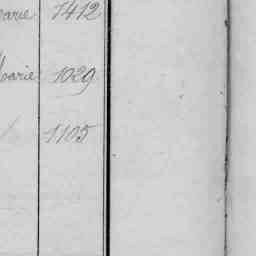 arie 1412
Marie 1029
1105